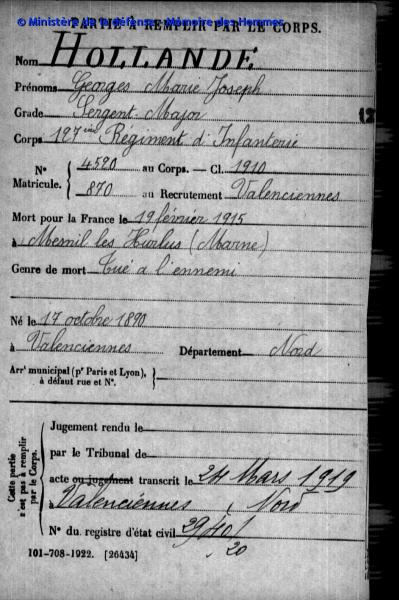 © Ministère de la défense - Mémoire des Hommes
PARTIE A REMPLIR PAR LE CORPS.
Nom HOLLANDE
Prénoms Georges Marie Joseph
Grade Sergent-Major
Corps 127ème Régiment d'Infanterie
N° Matricule. { 4520 au Corps. — Cl. 1910
870 au Recrutement Valenciennes
Mort pour la France le 19 février 1915
à Mesnil les Hurlus (Marne)
Genre de mort Tué à l'ennemi
Né le 17 octobre 1890
à Valenciennes Département Nord
Arrt municipal (pr Paris et Lyon), à défaut rue et N°. }
Cette partie n'est pas à remplir par le Corps.
Jugement rendu le
par le Tribunal de
acte ou jugement transcrit le 24 Mars 1919
à Valenciennes, Nord
N° du registre d'état civil 2940/
20
101-708-1922. [26434]